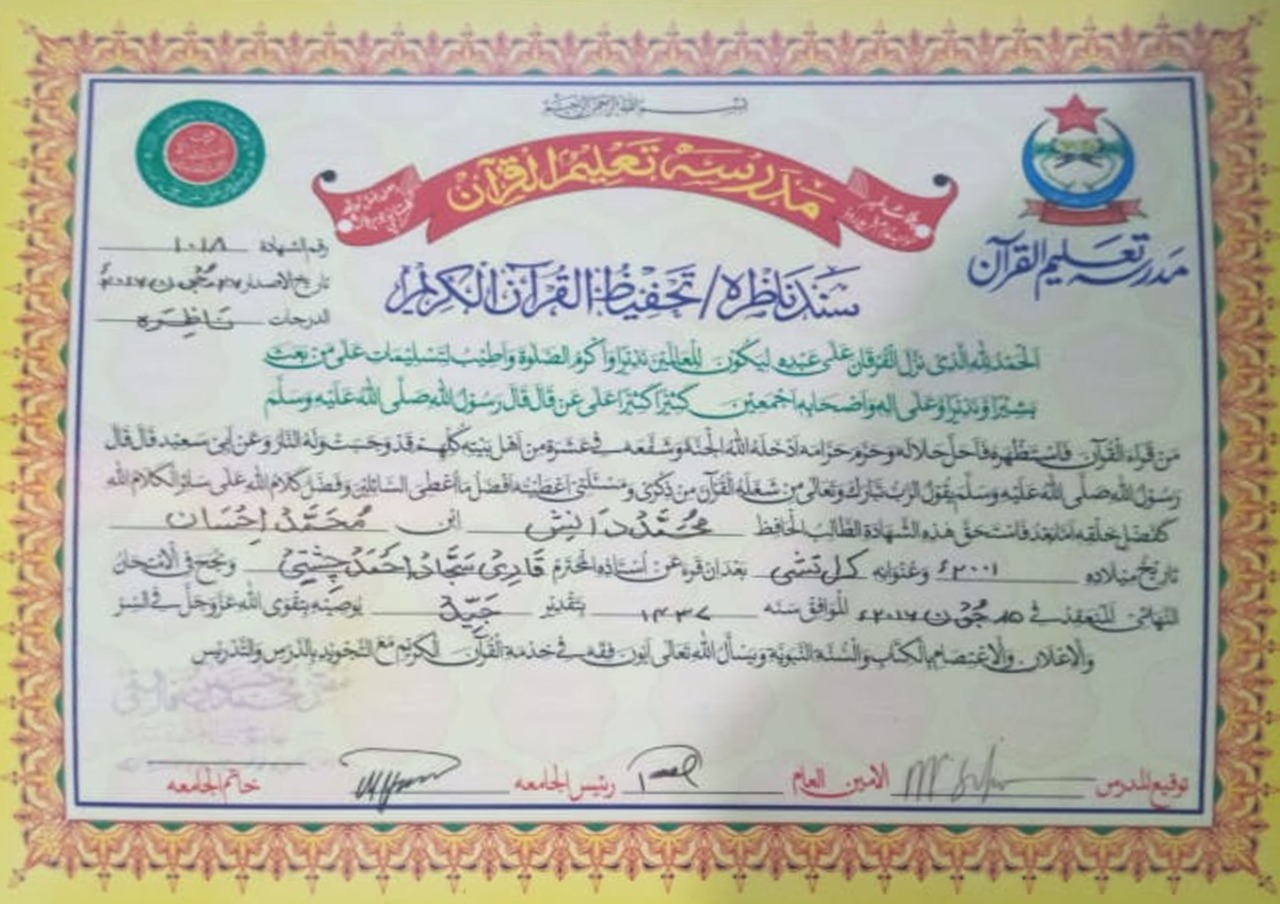 بسم الله الرحمن الرحيم
مدرسہ تعلیم القرآن
مدرسہ تعلیم القرآن
رقم الشهادة ۱۰۱۸
تاريخ الاصدار
الدرجات ناظرہ
سند ناظرہ / تحفيظ القرآن الكريم
الحمد لله الذي نزل الفرقان على عبده ليكون للعالمين نذيرا واكرم الصلوة واطيب لتسليمات على من بعث
بشيرا ونذيرا وعلى اله واصحابه اجمعين كثيرا كثيرا على عن قال قال رسول الله صلى الله عليه وسلم
من قراء القرآن فاستظهره فاحل حلاله وحرم حرامه ادخله الله الجنة وشفعه في عشرة من اهل بيته كلهم قد وجبت وله النار وعن ابى سعيد قال قال
رسول الله صلى الله عليه وسلم يقول الرب تبارك وتعالى من شغله القرآن من ذكرى ومسئلتى اعطيته افضل ما اعطى السائلين وفضل كلام الله على سائر الكلام الله
كفضل خلقه اما بعد فاستحق هذه الشهادة الطالب الحافظ محمد دانش ابن محمد احسان
تاريخ ميلاده ۲۰۰۱ء وعنوانه بعد ان قرء عن استاذه المحترم قاری سجاد احمد چشتی ونجح في الامتحان
النهائى المنعقد في ۱۵ جون ۲۰۱۶ء الموافق سنه ۱۴۳۷ بتقدير جيد يوصيه بتقوى الله عز وجل في السر
والاعلان والاعتصام بالكتاب والسنة النبوية ويسأل الله تعالى ايون فقه في خدمة القرآن الكريم مع التجويد بالدرس والتدريس
توقيع المدرس الامين العام رئيس الجامعه خاتم الجامعه